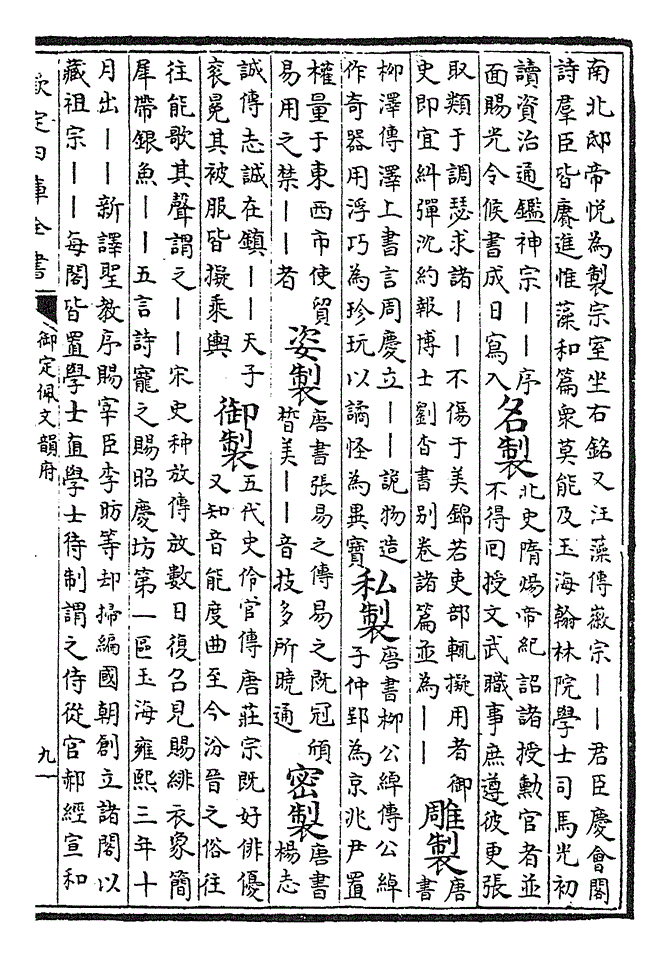 南北邸帝悅為製宗室坐右銘又汪藻傳徽宗——君臣慶會閣
詩羣臣皆賡進惟藻和篇衆莫能及玉海翰林院學士司馬光初
讀資治通鑑神宗——序
面賜光令候書成日寫入
名製
北史隋煬帝紀詔諸授勳官者並
不得回授文武職事庶遵彼更張
取類于調瑟求諸——不傷于美錦若吏部輒擬用者御
史即宜糾彈沈約報博士劉杳書别卷諸篇並為——
雕製
唐
書
柳澤傳澤上書言周慶立——詭物造
作奇器用浮巧為珍玩以譎怪為異寶
私製
唐書柳公綽傳公綽
子仲郢為京兆尹置
權量于東西市使貿
易用之禁——者
姿製
唐書張易之傳易之既冠頎
皙美——音技多所曉通
密製
唐書
楊志
誠傳志誠在鎮——天子
衮冕其被服皆擬乘輿
御製
五代史伶官傳唐莊宗既好俳優
又知音能度曲至今汾晉之俗往
往能歌其聲謂之——宋史种放傳放數日復召見賜緋衣象簡
犀帶銀魚——五言詩寵之賜昭慶坊第一區玉海雍熙三年十
月出——新譯聖教序賜宰臣李昉等却掃編國朝創立諸閣以
藏祖宗——每閣皆置學士直學士待制謂之侍從官郝經宣和
欽定四庫全書
御定佩文韻府
九